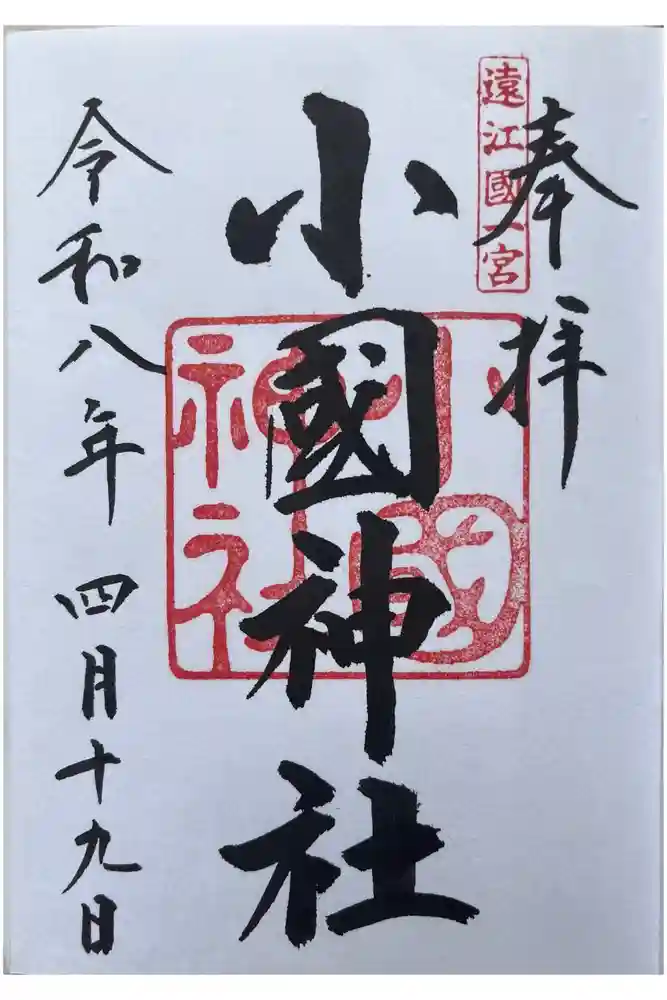 奉拝
遠江國一宮
小國神社
小國神社
令和八年四月十九日